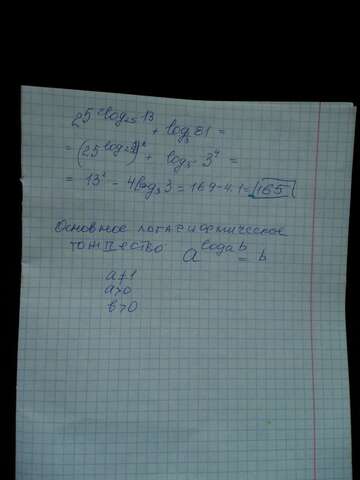 25^2log₂₅13 + log₃81 =
= (25^log₂₅13)² + log₃-3⁴ =
= 13² - 4log₃3 = 169-4.1= 165
Основное логарифмическое
тождество a^logab = b
a≠1
a>0
b>0